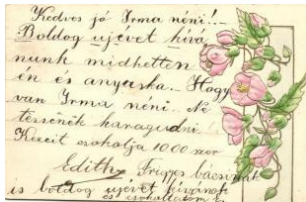 Kedves jó Irma néni!-
Boldog ujévet kívá
nunk midhetten
én és anyuska. Hogy
van Irma néni. Ne
tessenék haragudni.
Kezeit csokolja 1000 szer
Edith. Frigyes bácsinak
is boldog ujévet kívánok
és csokoltatom